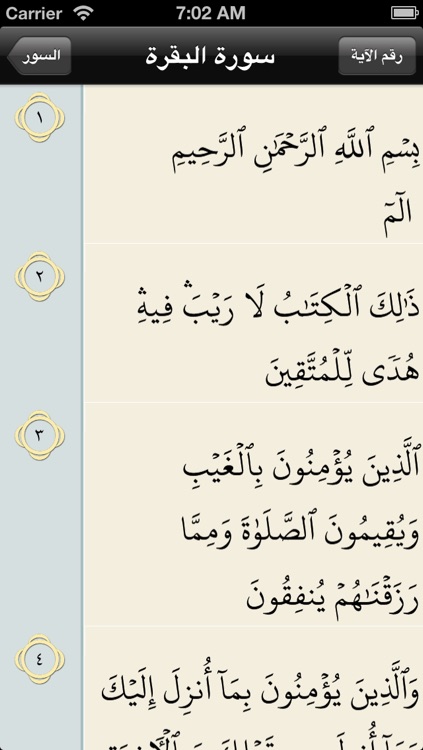 Carrier 7:02 AM
السور سورة البقرة رقم الآية
١
بِسْمِ ٱللَّهِ ٱلرَّحْمَٰنِ ٱلرَّحِيمِ
الٓمٓ
٢
ذَٰلِكَ ٱلْكِتَٰبُ لَا رَيْبَۛ فِيهِۛ
هُدًى لِّلْمُتَّقِينَ
٣
ٱلَّذِينَ يُؤْمِنُونَ بِٱلْغَيْبِ
وَيُقِيمُونَ ٱلصَّلَوٰةَ وَمِمَّا
رَزَقْنَٰهُمْ يُنفِقُونَ
٤
وَٱلَّذِينَ يُؤْمِنُونَ بِمَآ أُنزِلَ إِلَيْكَ